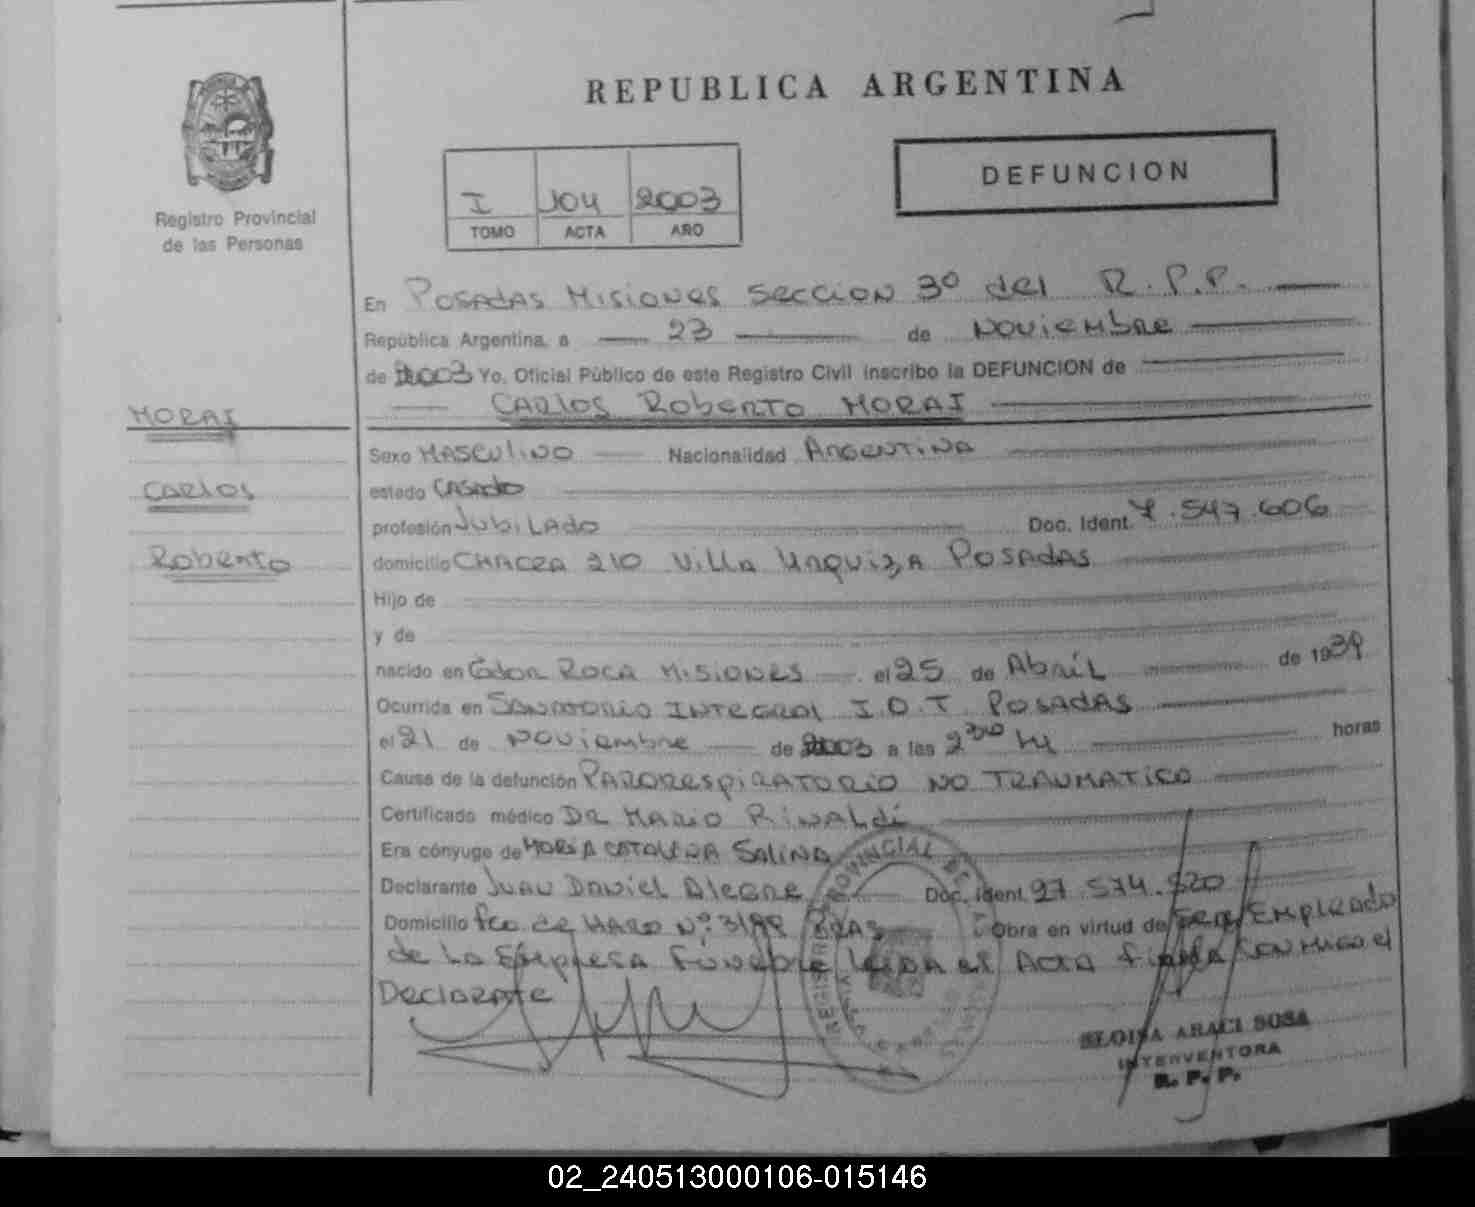 REPUBLICA ARGENTINA
Registro Provincial
de las Personas
I 104 2003
TOMO ACTA AÑO
DEFUNCION
En POSADAS MISIONES SECCION 3º del R.P.P.
República Argentina, a 23 de NOVIEMBRE
de 2003 Yo, Oficial Público de este Registro Civil inscribo la DEFUNCION de
CARLOS ROBERTO MORAI
MORAI
CARLOS
ROBERTO
Sexo MASCULINO Nacionalidad ARGENTINA
estado CASADO
profesión JUBILADO Doc. Ident. 7.547.606
domicilio CHACRA 210 Villa Urquiza POSADAS
Hijo de
y de
nacido en Gdor ROCA MISIONES el 25 de Abril de 1939
Ocurrida en SANATORIO INTEGRAL I.O.T. POSADAS
el 21 de NOVIEMBRE de 2003 a las 2 30 hs horas
Causa de la defunción PARORESPIRATORIO NO TRAUMATICO
Certificado médico DR MARIO RINALDI
Era cónyuge de MARIA CATALINA SALINA
Declarante JUAN DANIEL ALEGRE Doc. Ident. 27.574.520
Domicilio Fco de HARO Nº 3188 PDAS Obra en virtud de ser Empleado
de La Empresa Funebre Leida el ACTA firma CONMIGO el
DECLARANTE
ELOISA ARACI SOSA
INTERVENTORA
R. P. P.
02_240513000106-015146